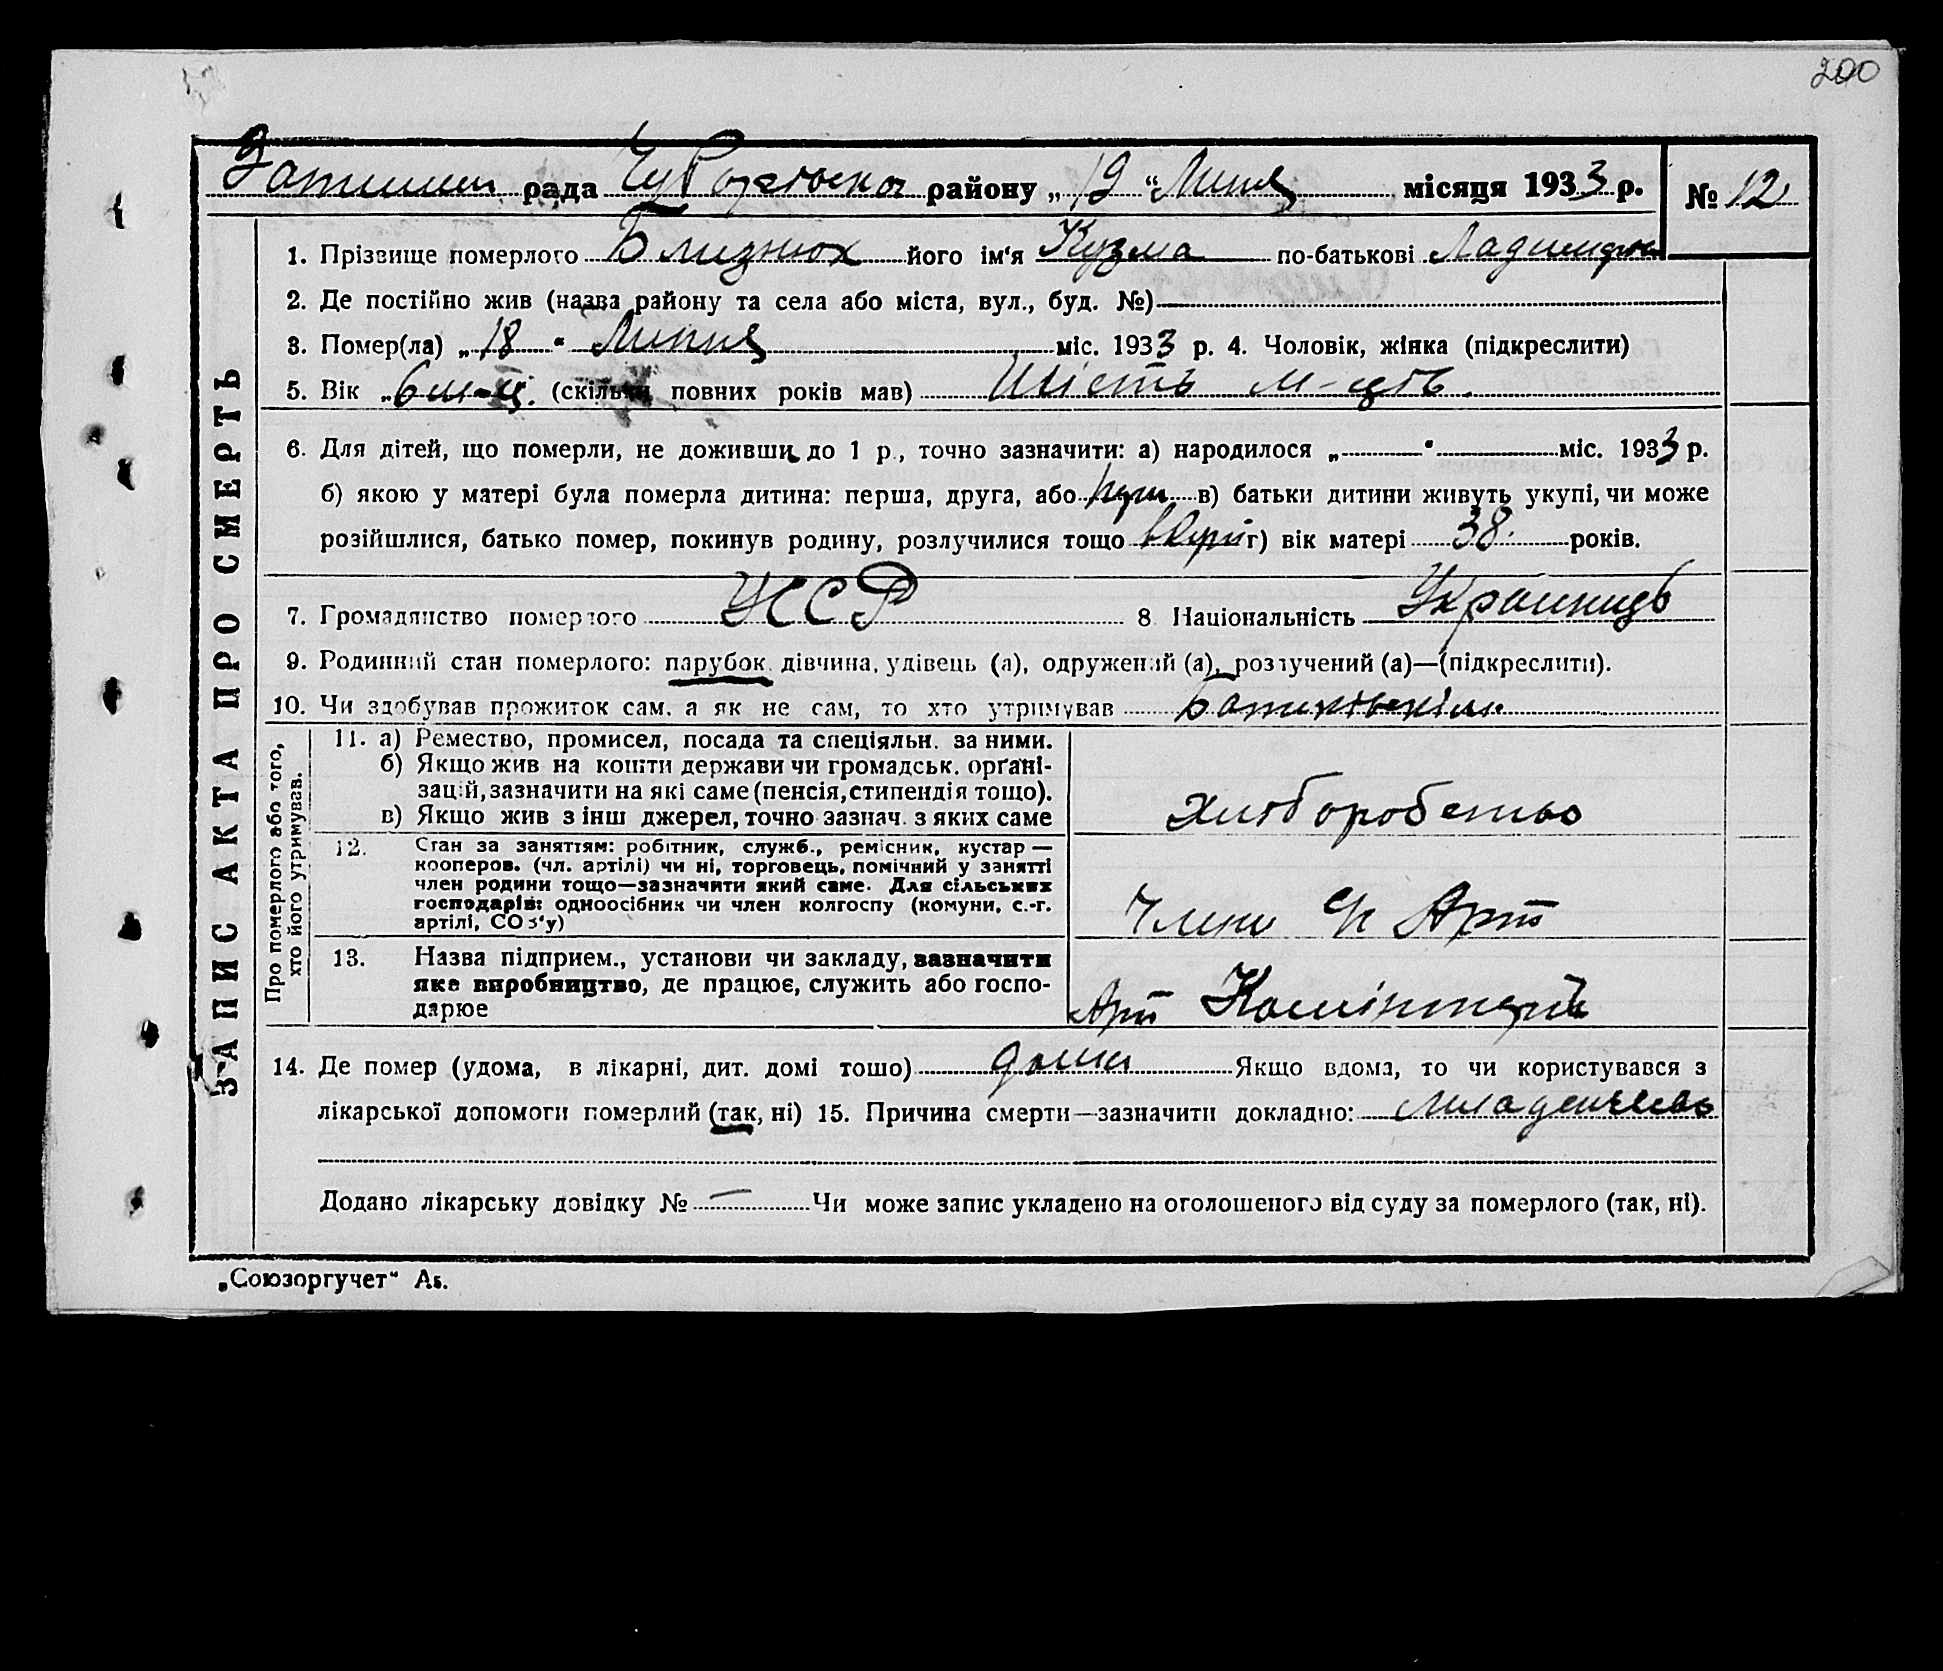 200
рада Чубарівсько району „19“ Липця місяця 1933 р. № 12
1. Прізвище померлого Близнюк його ім‘я Кузма по-батькові
2. Де постійно жив (назва району та села або міста, вул., буд. №)
3. Помер(ла) „18“ Липця міс. 1933 р. 4. Чоловік, жінка (підкреслити)
5. Вік „6 м-ц. (скільки повних років мав) Шість м-ців.
6. Для дітей, що померли, не доживши до 1 р., точно зазначити: а) народилося „ “ міс. 1933 р.
б) якою у матері була померла дитина: перша, друга, або в) батьки дитини живуть укупі, чи може
розійшлися, батько помер, покинув родину, розлучилися тощо вкупі г) вік матері 38 років.
7. Громадянство померлого УССР 8. Національність Украинець
9. Родинний стан померлого: парубок, дівчина, удівець (а), одружений (а), розлучений (а)—(підкреслити).
10. Чи здобував прожиток сам, а як не сам, то хто утримував
ЗАПИС АКТА ПРО СМЕРТЬ
Про померлого або того,
хто його утримував.
11. а) Ремество, промисел, посада та спеціяльн. за ними.
б) Якщо жив на кошти держави чи громадськ. орґані-
зацій, зазначити на які саме (пенсія, стипендія тощо).
в) Якщо жив з інш джерел, точно зазнач. з яких саме
хліборобство
12. Стан за заняттям: робітник, служб., ремісник, кустар —
кооперов. (чл. артілі) чи ні, торговець, помічний у занятті
член родини тощо—зазначити який саме. Для сільських
господарів: одноосібник чи член колгоспу (комуни, с.-г.
артілі, СОЗ‘у)
Член Арт
13. Назва підприєм., установи чи закладу, зазначити
яке виробництво, де працює, служить або госпо-
дарює
Арт Комінтерн
14. Де помер (удома, в лікарні, дит. домі тошо) дома Якщо вдома, то чи користувався з
лікарської допомоги померлий (так, ні) 15. Причина смерти—зазначити докладно:
Додано лікарську довідку № — Чи може запис укладено на оголошеного від суду за померлого (так, ні).
„Союзоргучет“ А5.